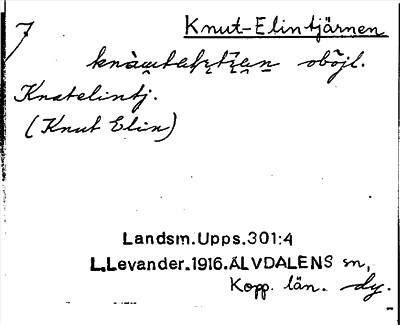 7 Knut-Elintjärnen
obõjl.
Knatelintj.
(Knut Elin)
Landsm.Upps.301:4
L.Levander.1916.ÄLVDALENS sn,
Kopp. län. dy.